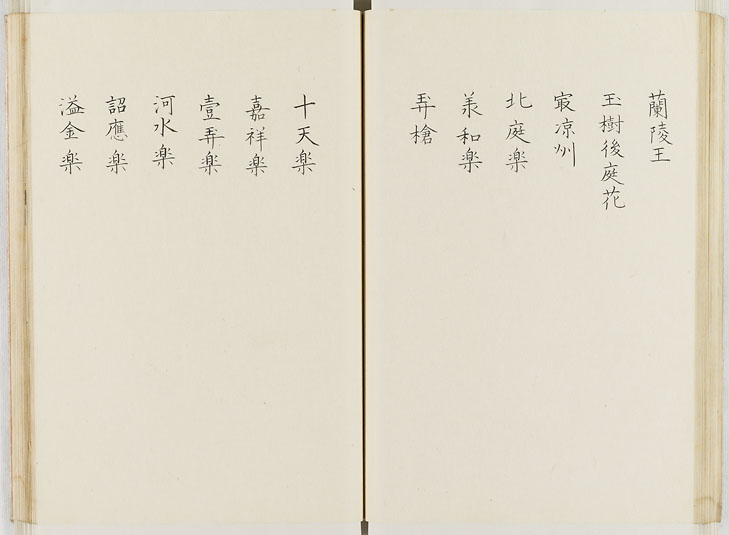 蘭陵王
玉樹後庭花
㝡凉州
北庭楽
羙和楽
弄槍
十天楽
嘉祥楽
壹弄楽
河水楽
詔應楽
溢金楽